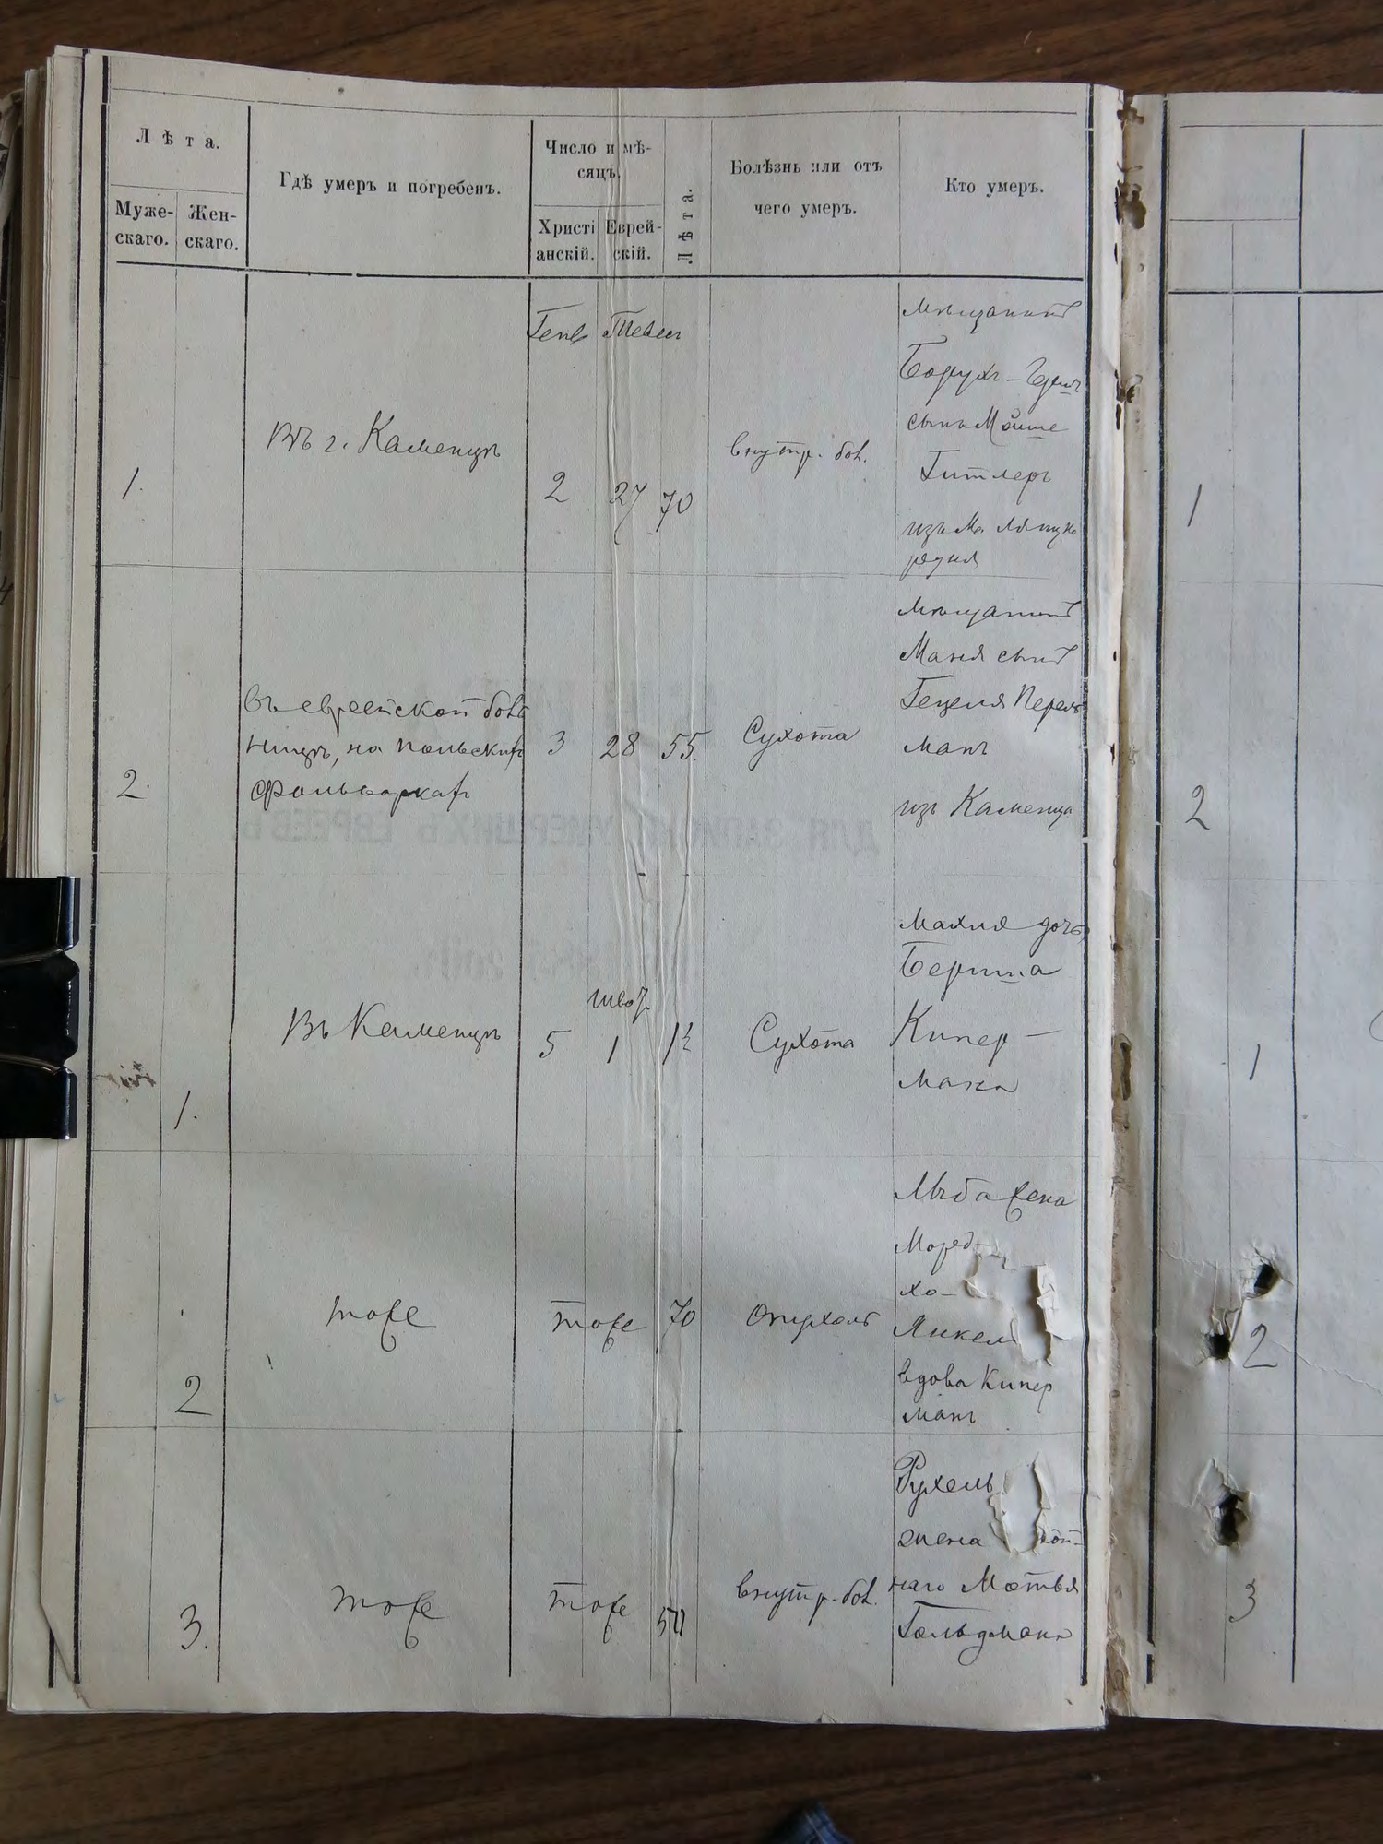 Лѣта.
Муже-
скаго.
Жен-
скаго.
Гдѣ умеръ и погребенъ.
Число и мѣ-
сяцъ.
Христі
анскій.
Еврей-
скій.
Лѣта.
Болѣзнь или отъ
чего умеръ.
Кто умеръ.
Генв Тевес
1.
Въ г. Каменцѣ
2 27 70
внутр. бол.
мѣщанинъ
Борухъ-
сынъ Мойше
Гитлеръ
изъ
2.
въ еврейской боль
ницѣ, на Польскихъ
фольваркахъ
3 28 55
Сухота
мѣщанинъ
Маня сынъ
Гецеля Перель
манъ
изъ Каменца
1.
Въ Каменцѣ
5 1 1½
Сухота
Малия дочь
Бериша
Кипер-
мана
2
тоже
тоже 70
опухоль
Моред-
хо-
вдова Кипер
манъ
3.
тоже
тоже 50
внутр. бол.
Рухель
жена
наго Мотьля
Гольдмана
1
2
1
2
3